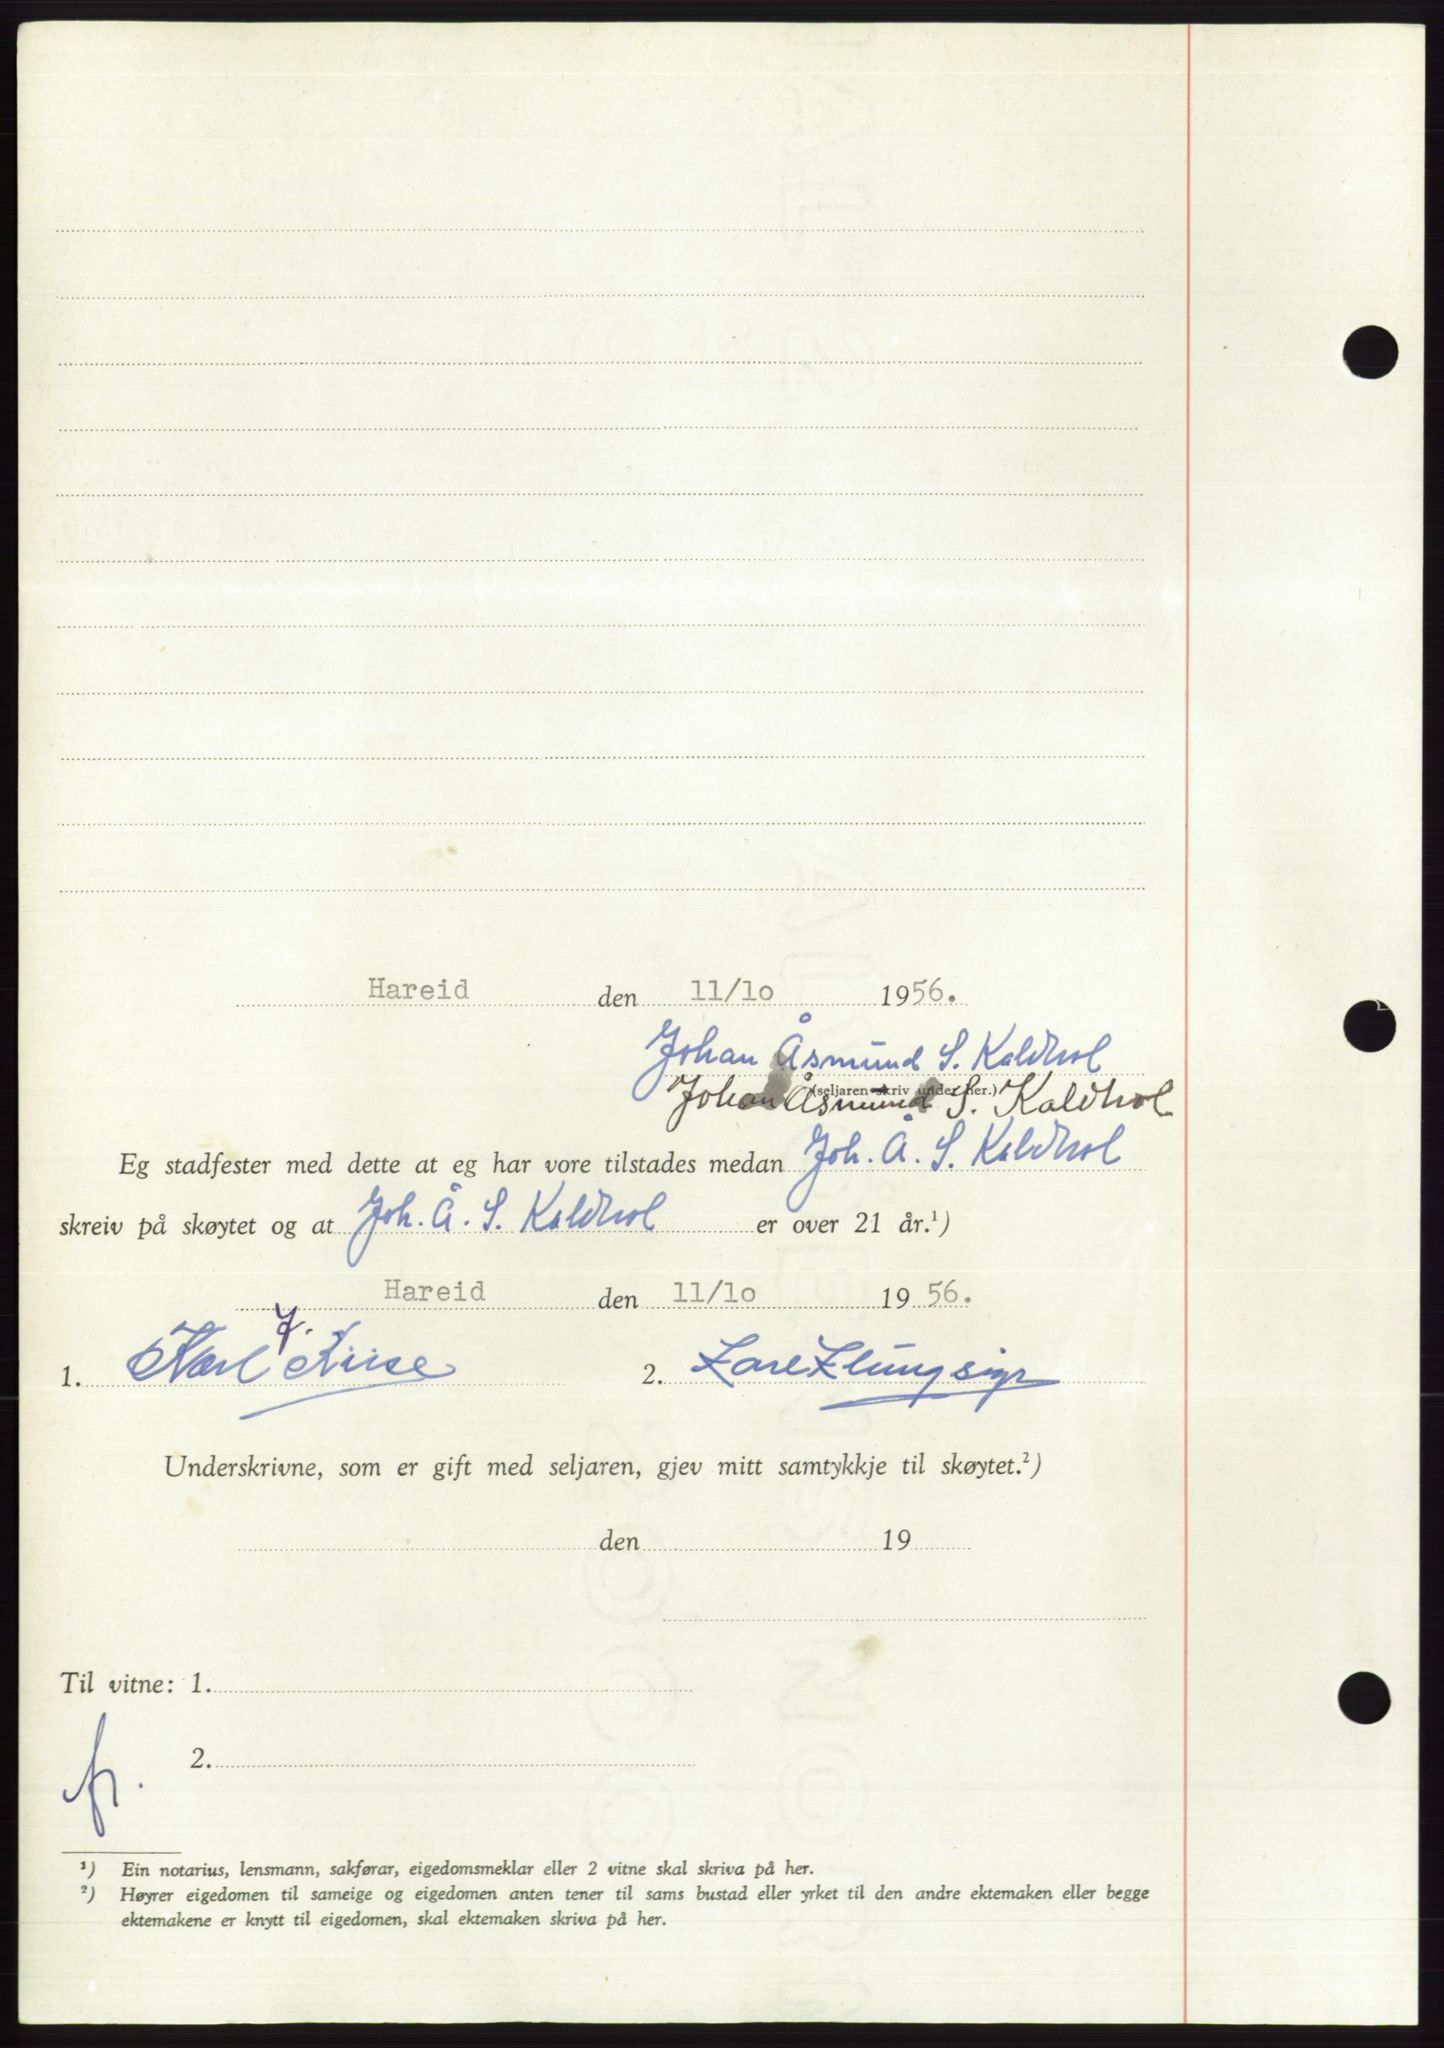 Hareid den 11/10 1956.
Johan Åsmund S. Kaldhol
(seljaren skriv under her.)
Johan Åsmund S. Kaldhol
Eg stadfester med dette at eg har vore tilstades medan Joh. Å. S. Kaldhol
skreiv på skøytet og at Joh. Å. S. Kaldhol er over 21 år.¹)
Hareid den 11/10 1956.
1. Karl 2.
Underskrivne, som er gift med seljaren, gjev mitt samtykkje til skøytet.²)
den 19
Til vitne: 1.
2.
¹) Ein notarius, lensmann, sakførar, eigedomsmeklar eller 2 vitne skal skriva på her.
²) Høyrer eigedomen til sameige og eigedomen anten tener til sams bustad eller yrket til den andre ektemaken eller begge
ektemakene er knytt til eigedomen, skal ektemaken skriva på her.